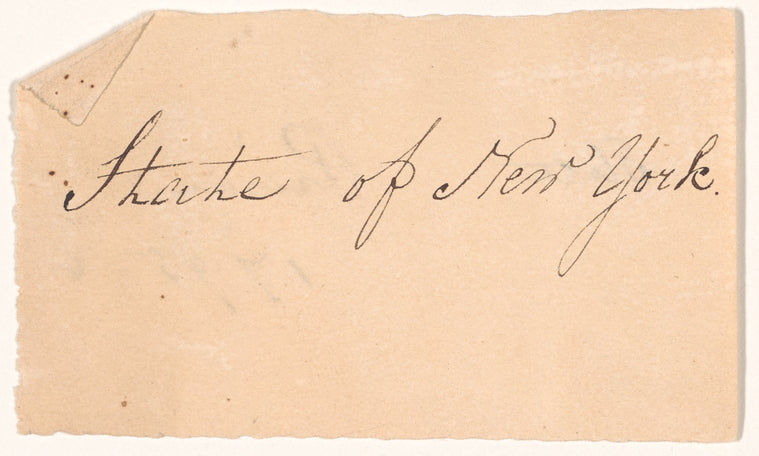 State of New York.